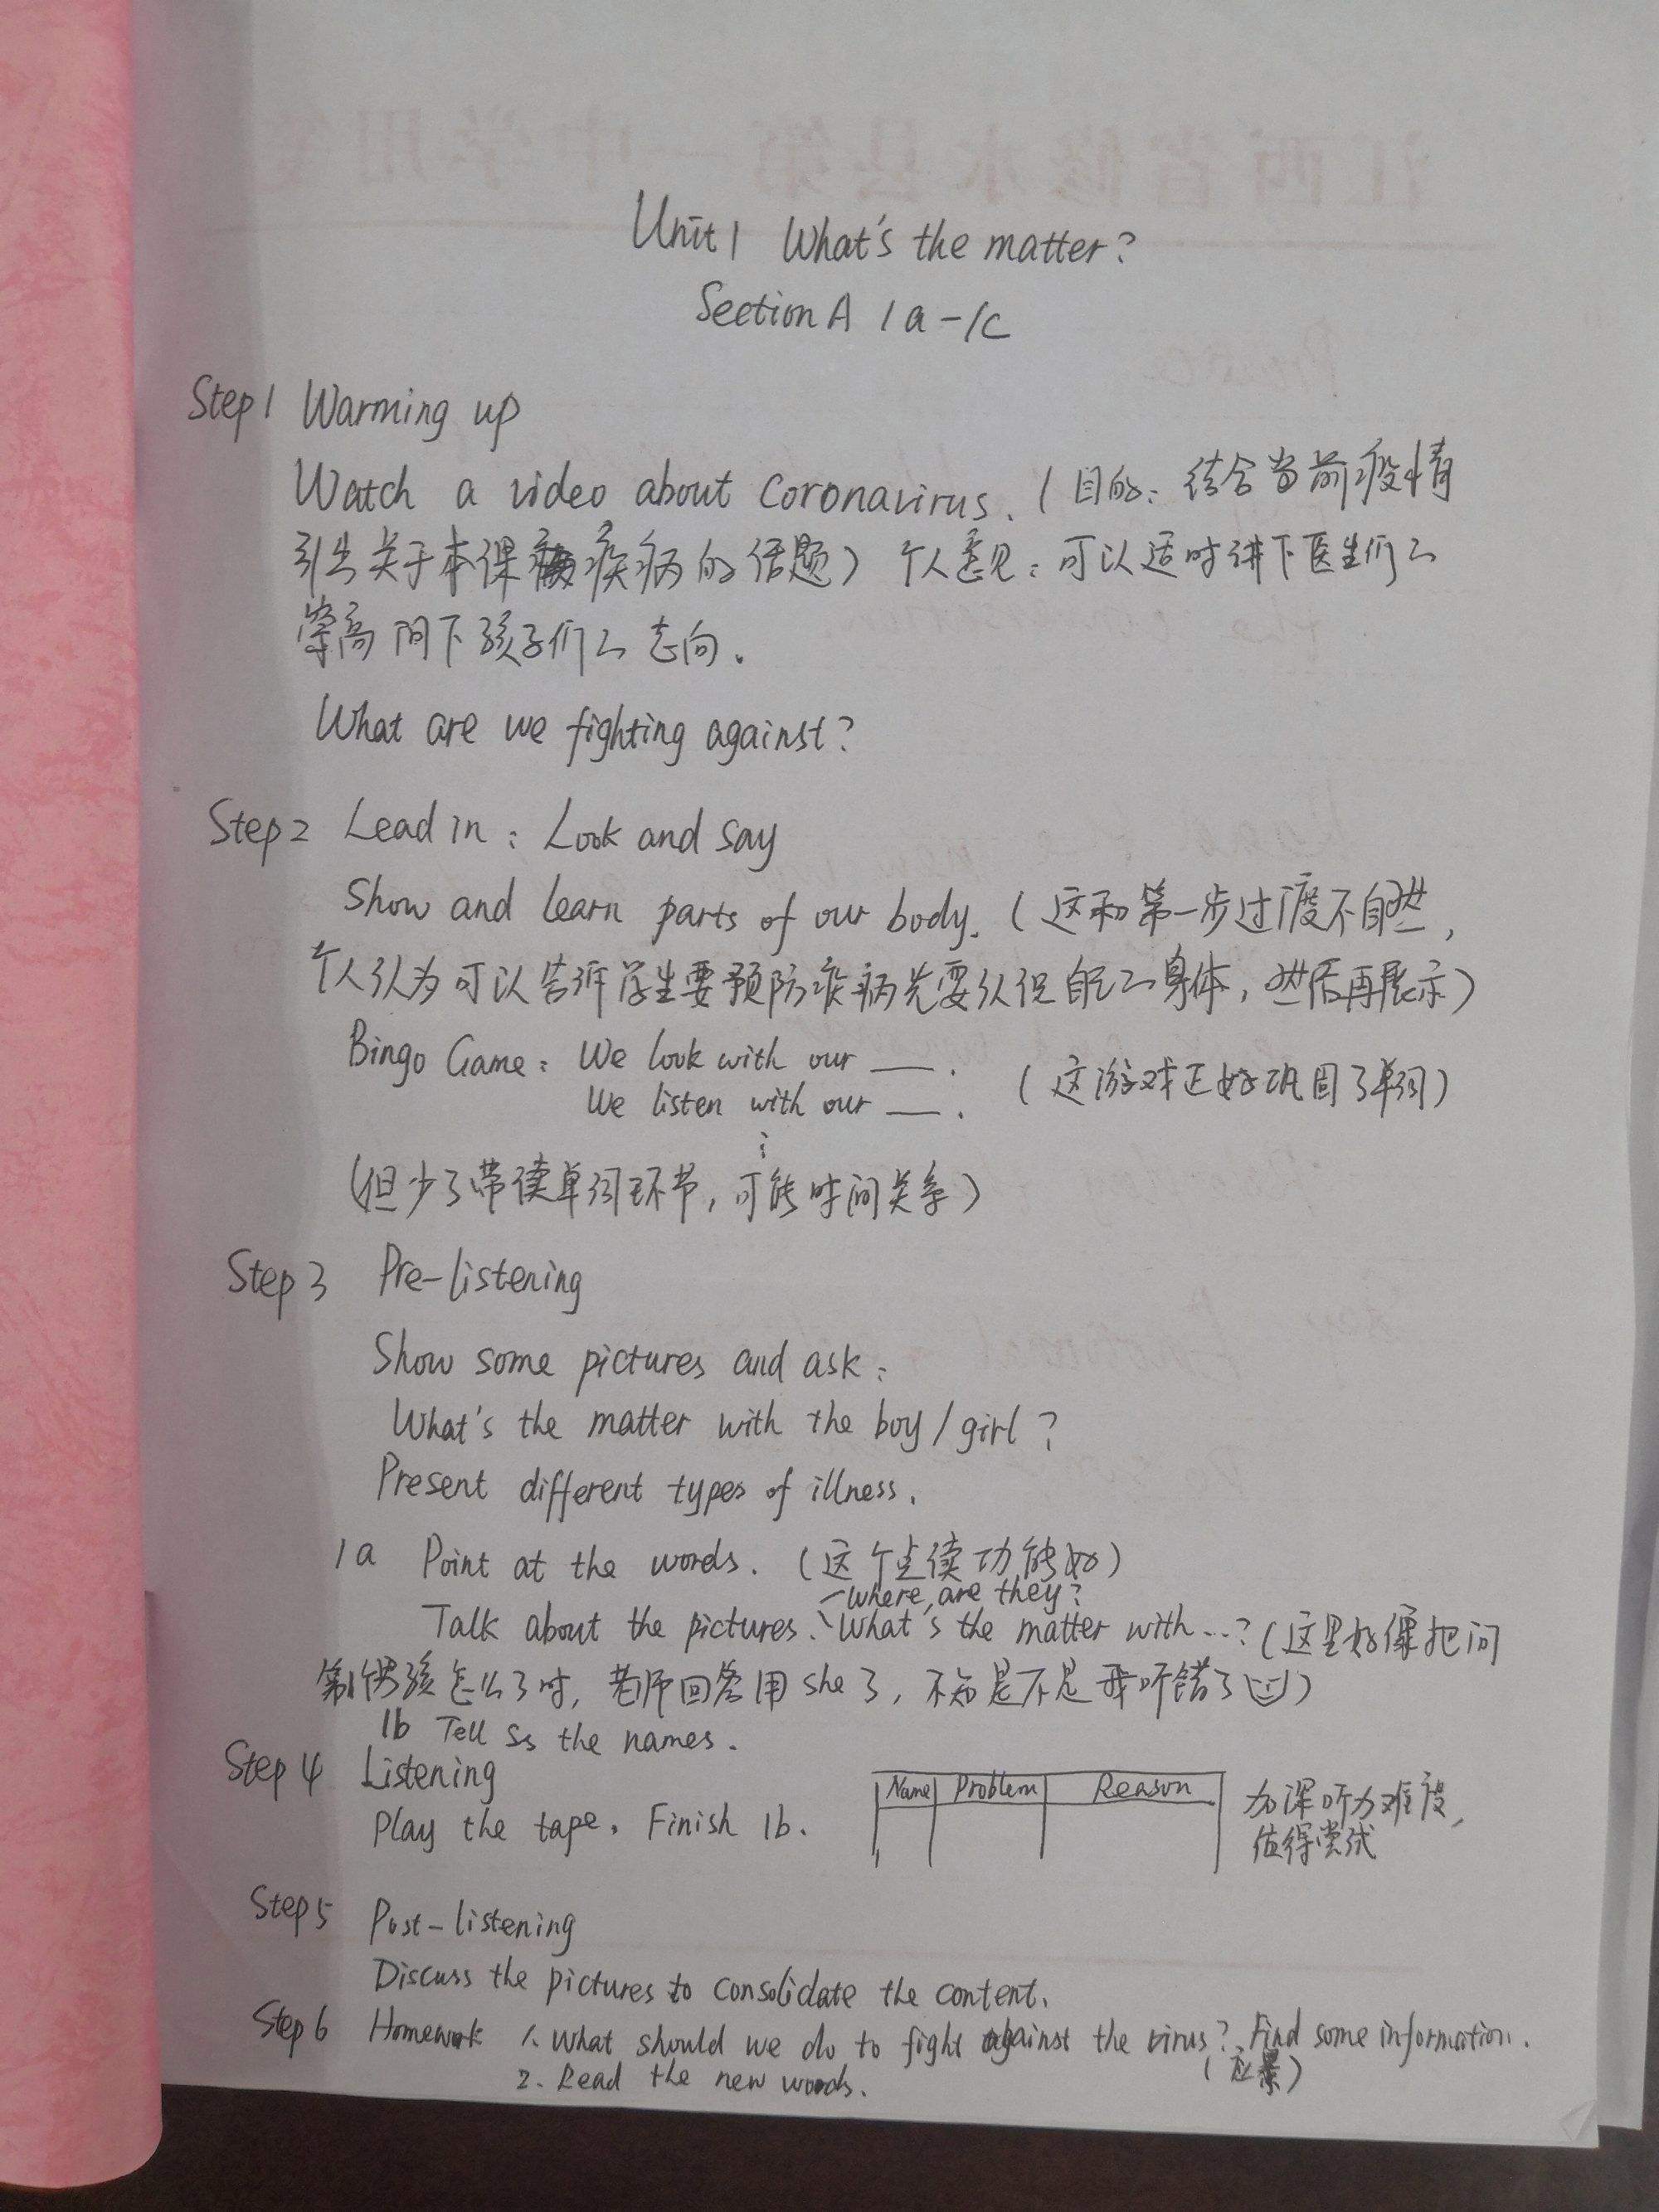 Unit 1 What's the matter?
Section A 1a-1c
Step 1 Warming up
Watch a video about Coronavirus. (目的: 结合当前疫情
引出关于本课疾病的话题) 个人意见: 可以适时讲下医生们的
崇高 问下孩子们的志向.
What are we fighting against?
Step 2 Lead in: Look and say
Show and learn parts of our body. (这和第一步过渡不自然,
个人认为可以告诉学生要预防疾病先要认识自己的身体, 然后再展示)
Bingo Game: We look with our ___. (这游戏正好巩固了单词)
We listen with our ___.
⋮
(但少了带读单词环节, 可能时间关系)
Step 3 Pre-listening
Show some pictures and ask:
What's the matter with the boy/girl?
Present different types of illness.
1a Point at the words. (这个点读功能好)
-Where are they?
Talk about the pictures. What's the matter with...? (这里好像把问
第1个男孩怎么了时, 老师回答用she了, 不知是不是我听错了)
1b Tell Ss the names.
Step 4 Listening
Name Problem Reason
加深听力难度,
Play the tape. Finish 1b.
值得尝试
Step 5 Post-listening
Discuss the pictures to consolidate the content.
Step 6 Homework 1. What should we do to fight against the virus? Find some information.
(应景)
2. Read the new words.